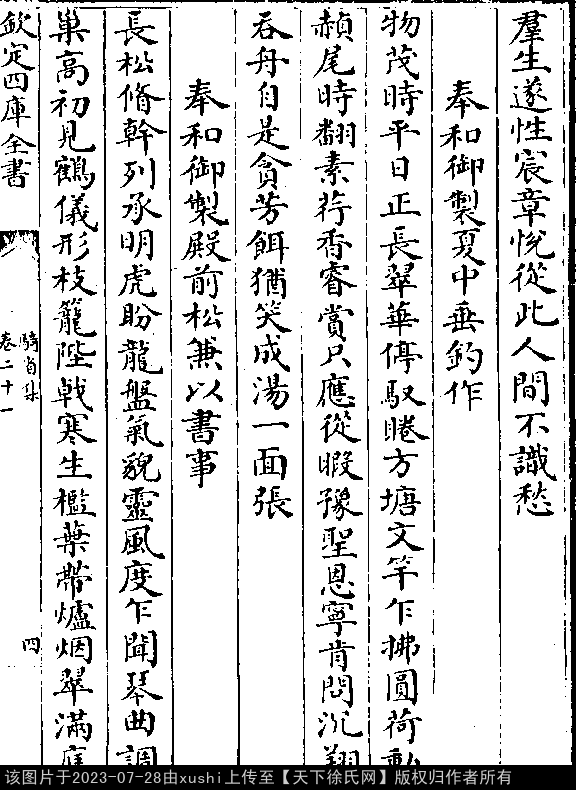 羣生遂性宸章悅從此人間不識愁
奉和御製夏中垂釣作
物茂時平日正長翠華停馭睠方塘文竿乍拂圓荷動
赬尾時翻素荇香睿賞只應從暇豫聖恩寧肯問沉翔
吞舟自是貪芳餌猶笑成湯一面張
奉和御製殿前松兼以書事
長松脩幹列承明虎盼龍盤氣貌靈風度乍聞琴曲調
巢高初見鶴儀形枝籠陛㦸寒生檻葉帶爐烟翠滿庭
欽定四庫全書
騎省集
卷二十一
四
该图片于2023-07-28由xushi上传至【天下徐氏网】版权归作者所有